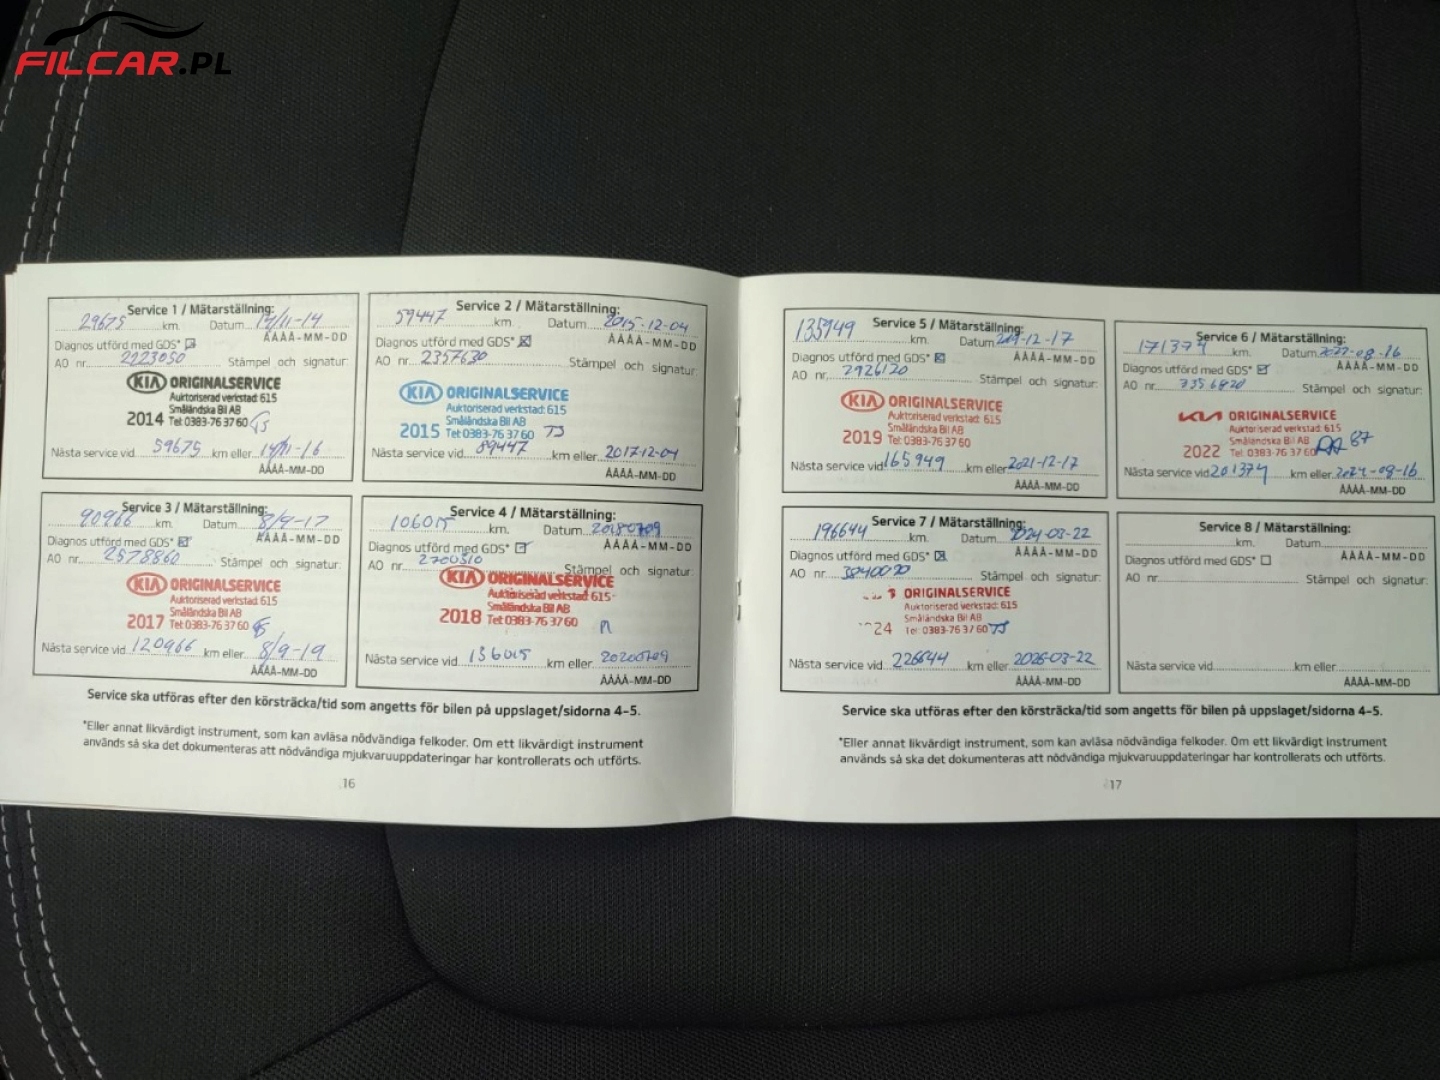 FILCAR.PL
Service 1 / Mätarställning:
29675 km. Datum 14/11-14
Diagnos utförd med GDS* ÅÅÅÅ-MM-DD
AO nr. 2223050 Stämpel och signatur:
KIA ORIGINALSERVICE
Auktoriserad verkstad: 615
Småländska Bil AB
2014 Tel: 0383-76 37 60
Nästa service vid 59675 km eller 14/11-16
ÅÅÅÅ-MM-DD
Service 2 / Mätarställning:
59447 km. Datum 2015-12-04
Diagnos utförd med GDS* ÅÅÅÅ-MM-DD
AO nr. 2357630 Stämpel och signatur:
KIA ORIGINALSERVICE
Auktoriserad verkstad: 615
Småländska Bil AB
2015 Tel: 0383-76 37 60 TJ
Nästa service vid 89447 km eller 2017-12-04
ÅÅÅÅ-MM-DD
Service 3 / Mätarställning:
90966 km. Datum 8/9-17
Diagnos utförd med GDS* ÅÅÅÅ-MM-DD
AO nr. 2578860 Stämpel och signatur:
KIA ORIGINALSERVICE
Auktoriserad verkstad: 615
Småländska Bil AB
2017 Tel: 0383-76 37 60
Nästa service vid 120966 km eller 8/9-19
ÅÅÅÅ-MM-DD
Service 4 / Mätarställning:
106015 km. Datum 20180709
Diagnos utförd med GDS* ÅÅÅÅ-MM-DD
AO nr. 2700310 Stämpel och signatur:
KIA ORIGINALSERVICE
Auktoriserad verkstad: 615
Småländska Bil AB
2018 Tel: 0383-76 37 60
Nästa service vid 136015 km eller 20200709
ÅÅÅÅ-MM-DD
Service ska utföras efter den körsträcka/tid som angetts för bilen på uppslaget/sidorna 4-5.
*Eller annat likvärdigt instrument, som kan avläsa nödvändiga felkoder. Om ett likvärdigt instrument
används så ska det dokumenteras att nödvändiga mjukvaruuppdateringar har kontrollerats och utförts.
16
Service 5 / Mätarställning:
135949 km. Datum 2019-12-17
Diagnos utförd med GDS* ÅÅÅÅ-MM-DD
AO nr. 2926120 Stämpel och signatur:
KIA ORIGINALSERVICE
Auktoriserad verkstad: 615
Småländska Bil AB
2019 Tel: 0383-76 37 60
Nästa service vid 165949 km eller 2021-12-17
ÅÅÅÅ-MM-DD
Service 6 / Mätarställning:
171374 km. Datum 2022-08-16
Diagnos utförd med GDS* ÅÅÅÅ-MM-DD
AO nr. 3356820 Stämpel och signatur:
KIA ORIGINALSERVICE
Auktoriserad verkstad: 615
Småländska Bil AB 87
2022 Tel: 0383-76 37 60
Nästa service vid 201374 km eller 2024-08-16
ÅÅÅÅ-MM-DD
Service 7 / Mätarställning:
196644 km. Datum 2024-03-22
Diagnos utförd med GDS* ÅÅÅÅ-MM-DD
AO nr. 3840090 Stämpel och signatur:
ORIGINALSERVICE
Auktoriserad verkstad: 615
Småländska Bil AB
24 Tel: 0383-76 37 60 TJ
Nästa service vid 226644 km eller 2026-03-22
ÅÅÅÅ-MM-DD
Service 8 / Mätarställning:
km. Datum
Diagnos utförd med GDS* ÅÅÅÅ-MM-DD
AO nr. Stämpel och signatur:
Nästa service vid km eller
ÅÅÅÅ-MM-DD
Service ska utföras efter den körsträcka/tid som angetts för bilen på uppslaget/sidorna 4-5.
*Eller annat likvärdigt instrument, som kan avläsa nödvändiga felkoder. Om ett likvärdigt instrument
används så ska det dokumenteras att nödvändiga mjukvaruuppdateringar har kontrollerats och utförts.
17